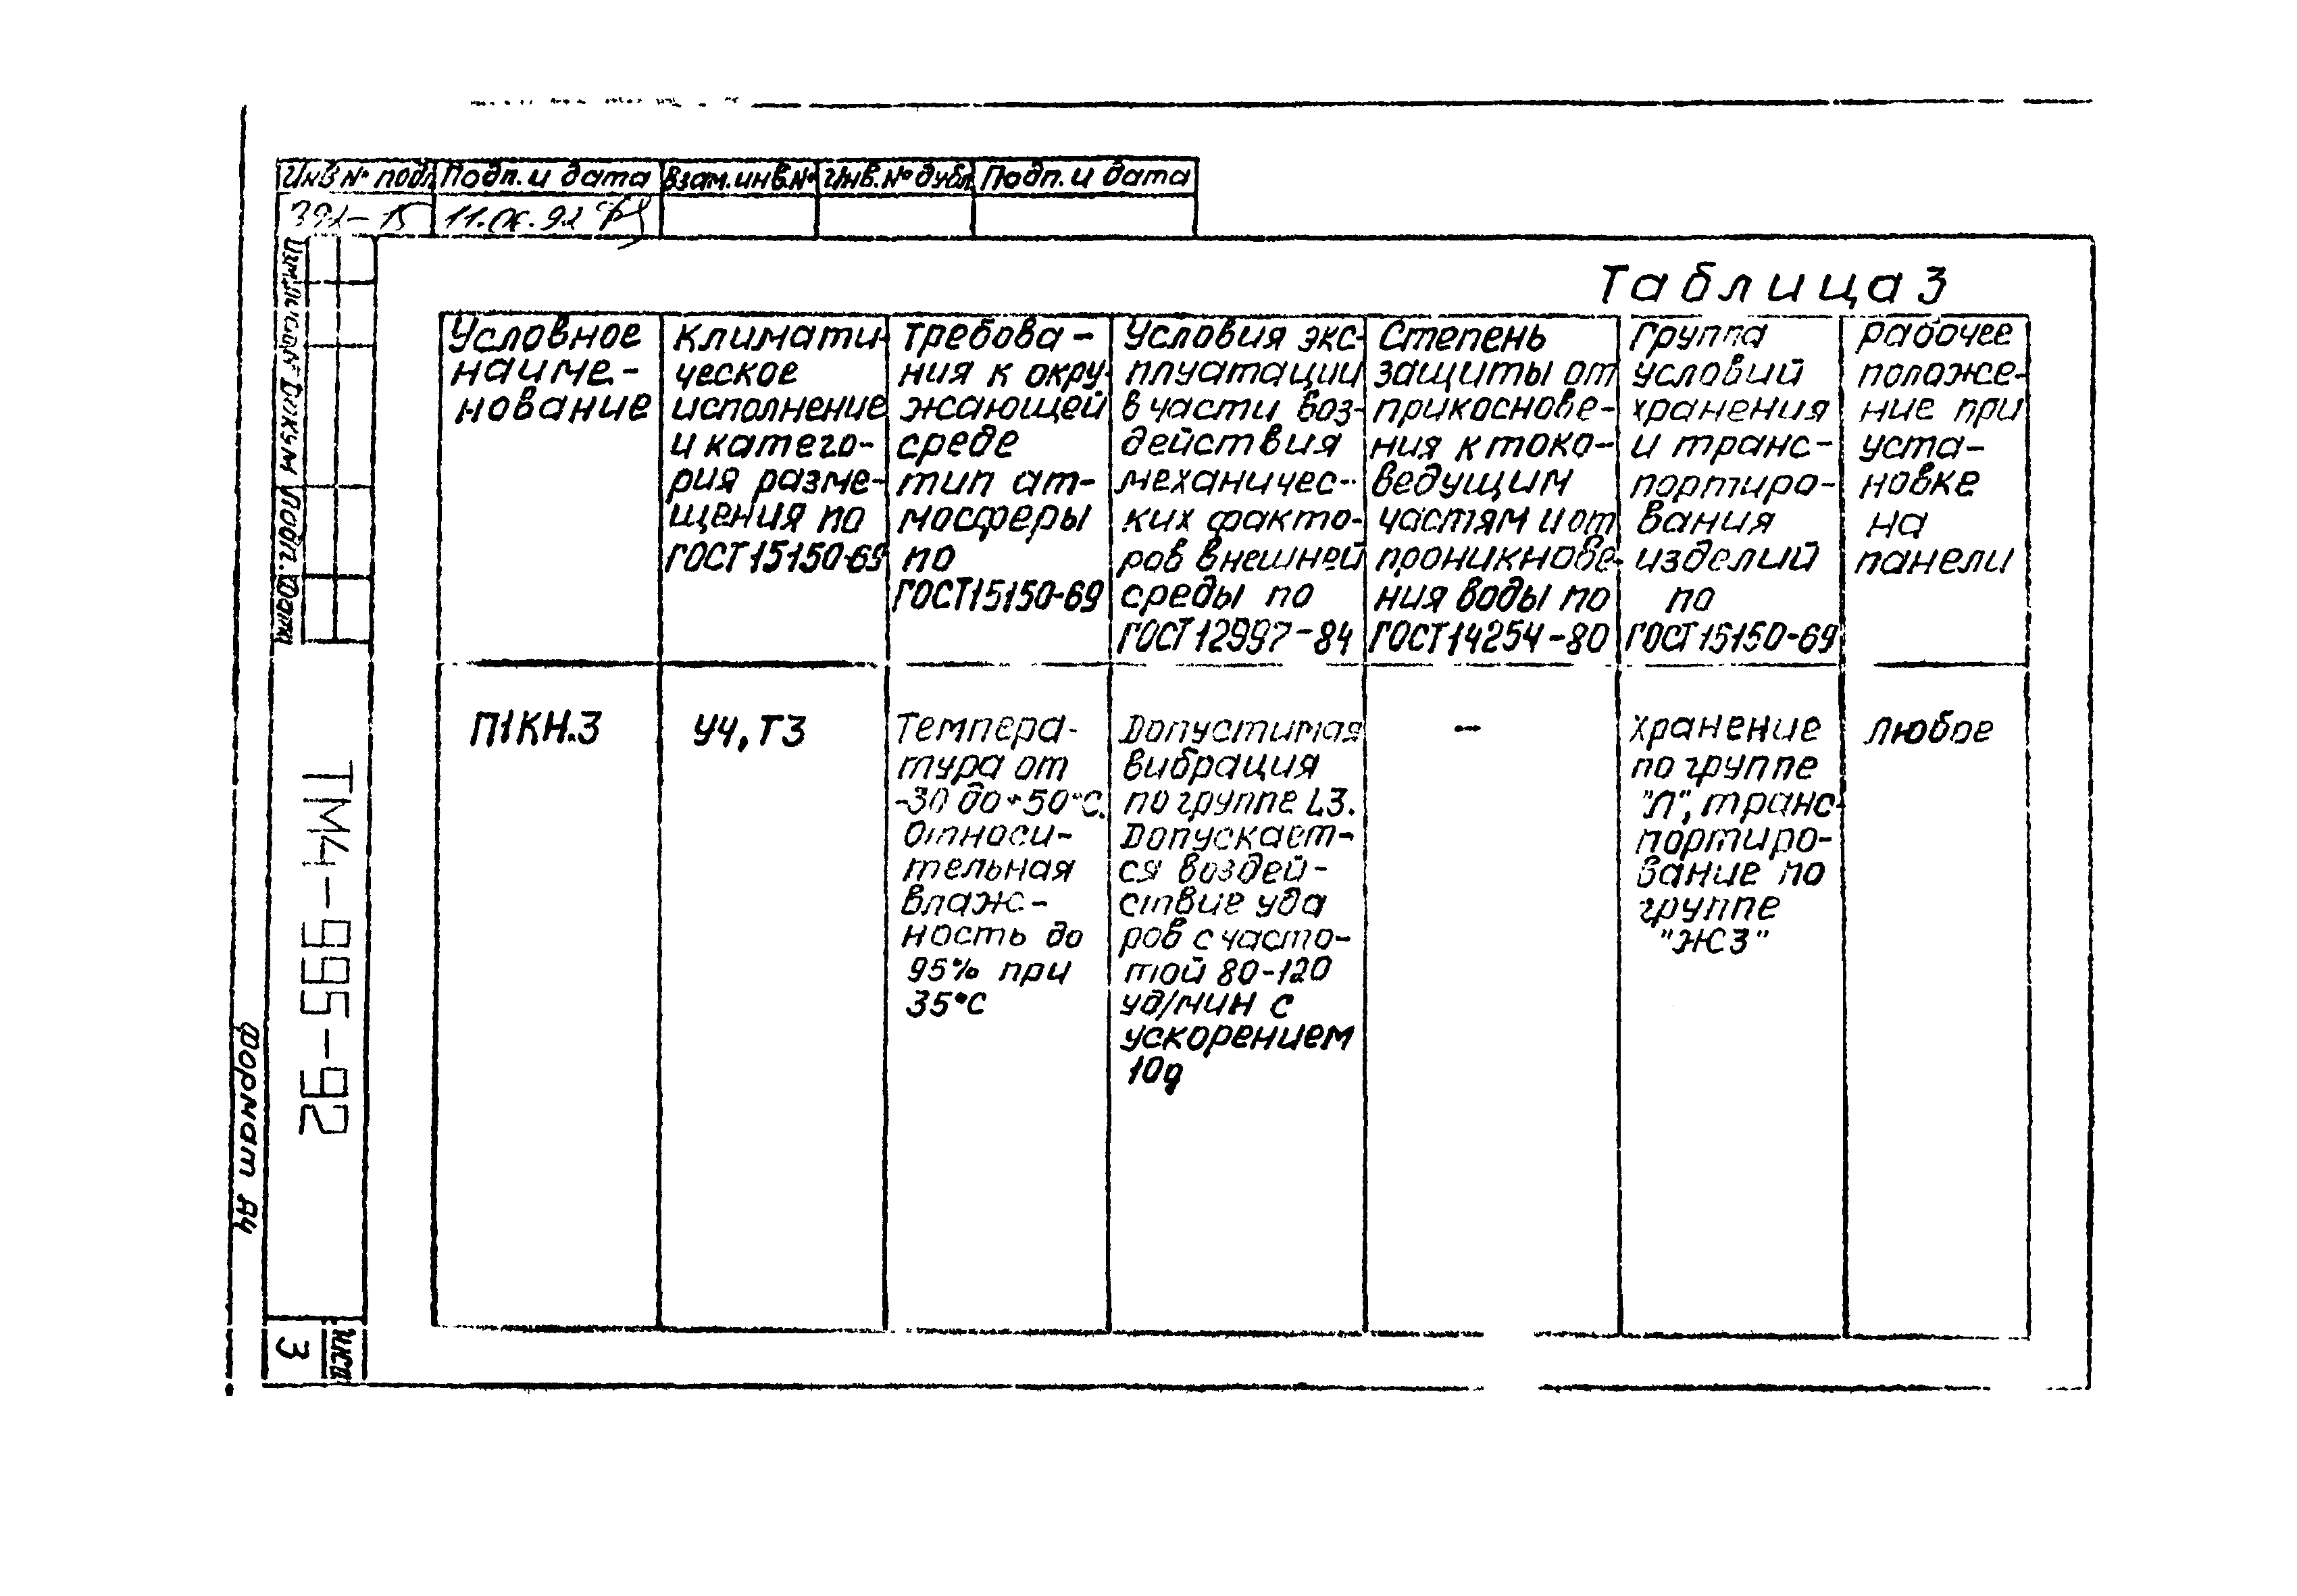 Инв № подл. Подп. и дата Взам. инв. № Инв. № дубл. Подп. и дата
Таблица 3
Условное
наиме-
нование
Климати-
ческое
исполнение
и катего-
рия разме-
щения по
ГОСТ 15150-69
Требова-
ния к окру-
жающей
среде
тип ат-
мосферы
по
ГОСТ 15150-69
Условия экс-
плуатации
в части воз-
действия
механичес-
ких факто-
ров внешней
среды по
ГОСТ 12997-84
Степень
защиты от
прикоснове-
ния к токо-
ведущим
частям и от
проникнове-
ния воды по
ГОСТ 14254-80
Группа
условий
хранения
и транс-
портиро-
вания
изделий
по
ГОСТ 15150-69
Рабочее
положе-
ние при
уста-
новке
на
панели
П1КН.3
У4, Т3
Темпера-
тура от
-30 до +50°С.
Относи-
тельная
влаж-
ность до
95% при
35°С
Допустимая
вибрация
по группе L3.
Допускает-
ся воздей-
ствие уда
ров с часто-
той 80-120
уд/мин с
ускорением
10g
--
Хранение
по группе
"Л", транс-
портиро-
вание по
группе
"Ж3"
Любое
Подп. Дата
ТМ4-995-92
Формат А4
3